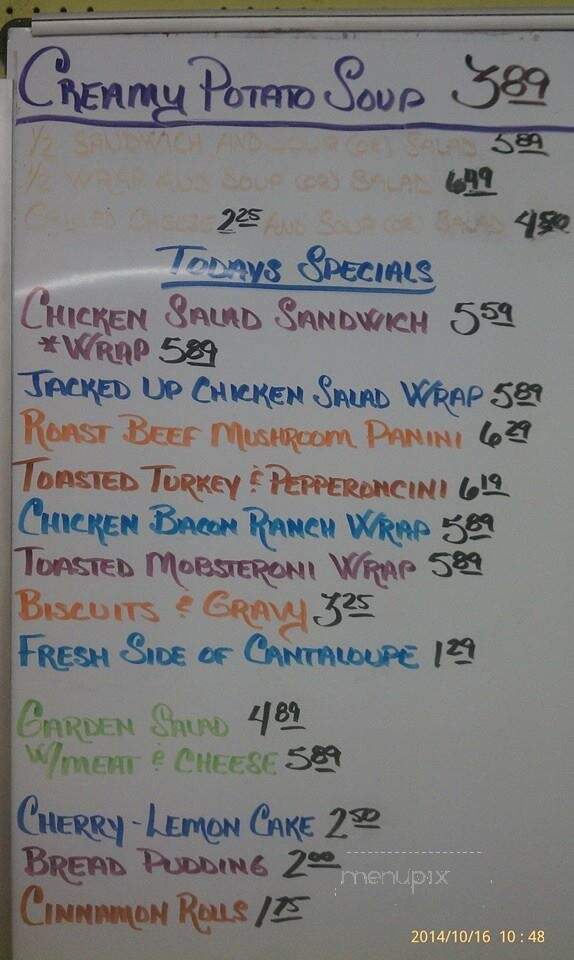 CREAMY POTATO SOUP 3.89
1/2 SANDWICH AND SOUP (OR) SALAD 5.89
1/2 WRAP AND SOUP (OR) SALAD 6.49
GRILLED CHEESE 2.25 AND SOUP (OR) SALAD 4.50
TODAYS SPECIALS
CHICKEN SALAD SANDWICH 5.59
*WRAP 5.89
JACKED UP CHICKEN SALAD WRAP 5.89
ROAST BEEF MUSHROOM PANINI 6.29
TOASTED TURKEY & PEPPERONCINI 6.19
CHICKEN BACON RANCH WRAP 5.89
TOASTED MOBSTERONI WRAP 5.89
BISCUITS & GRAVY 3.25
FRESH SIDE OF CANTALOUPE 1.29
GARDEN SALAD 4.89
W/MEAT & CHEESE 5.89
CHERRY-LEMON CAKE 2.50
BREAD PUDDING 2.00
menupix
CINNAMON ROLLS 1.75
2014/10/16 10:48